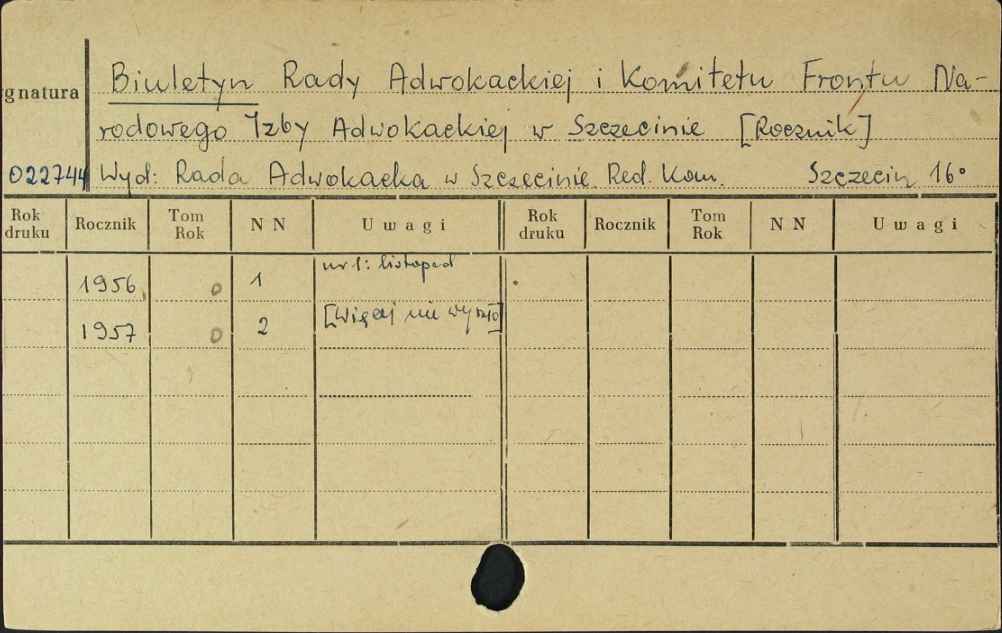 Biuletyn Rady Adwokackiej i Komitetu Frontu Na-
gnatura
rodowego Izby Adwokackiej w Szczecinie [Rocznik]
022744 Wyd: Rada Adwokacka w Szczecinie. Red. Kom. Szczecin 16°
Rok druku Rocznik Tom Rok N N Uwagi Rok druku Rocznik Tom Rok N N Uwagi
1956 0 1 nr 1: listopad
1957 0 2 [Więcej nie wyszło]